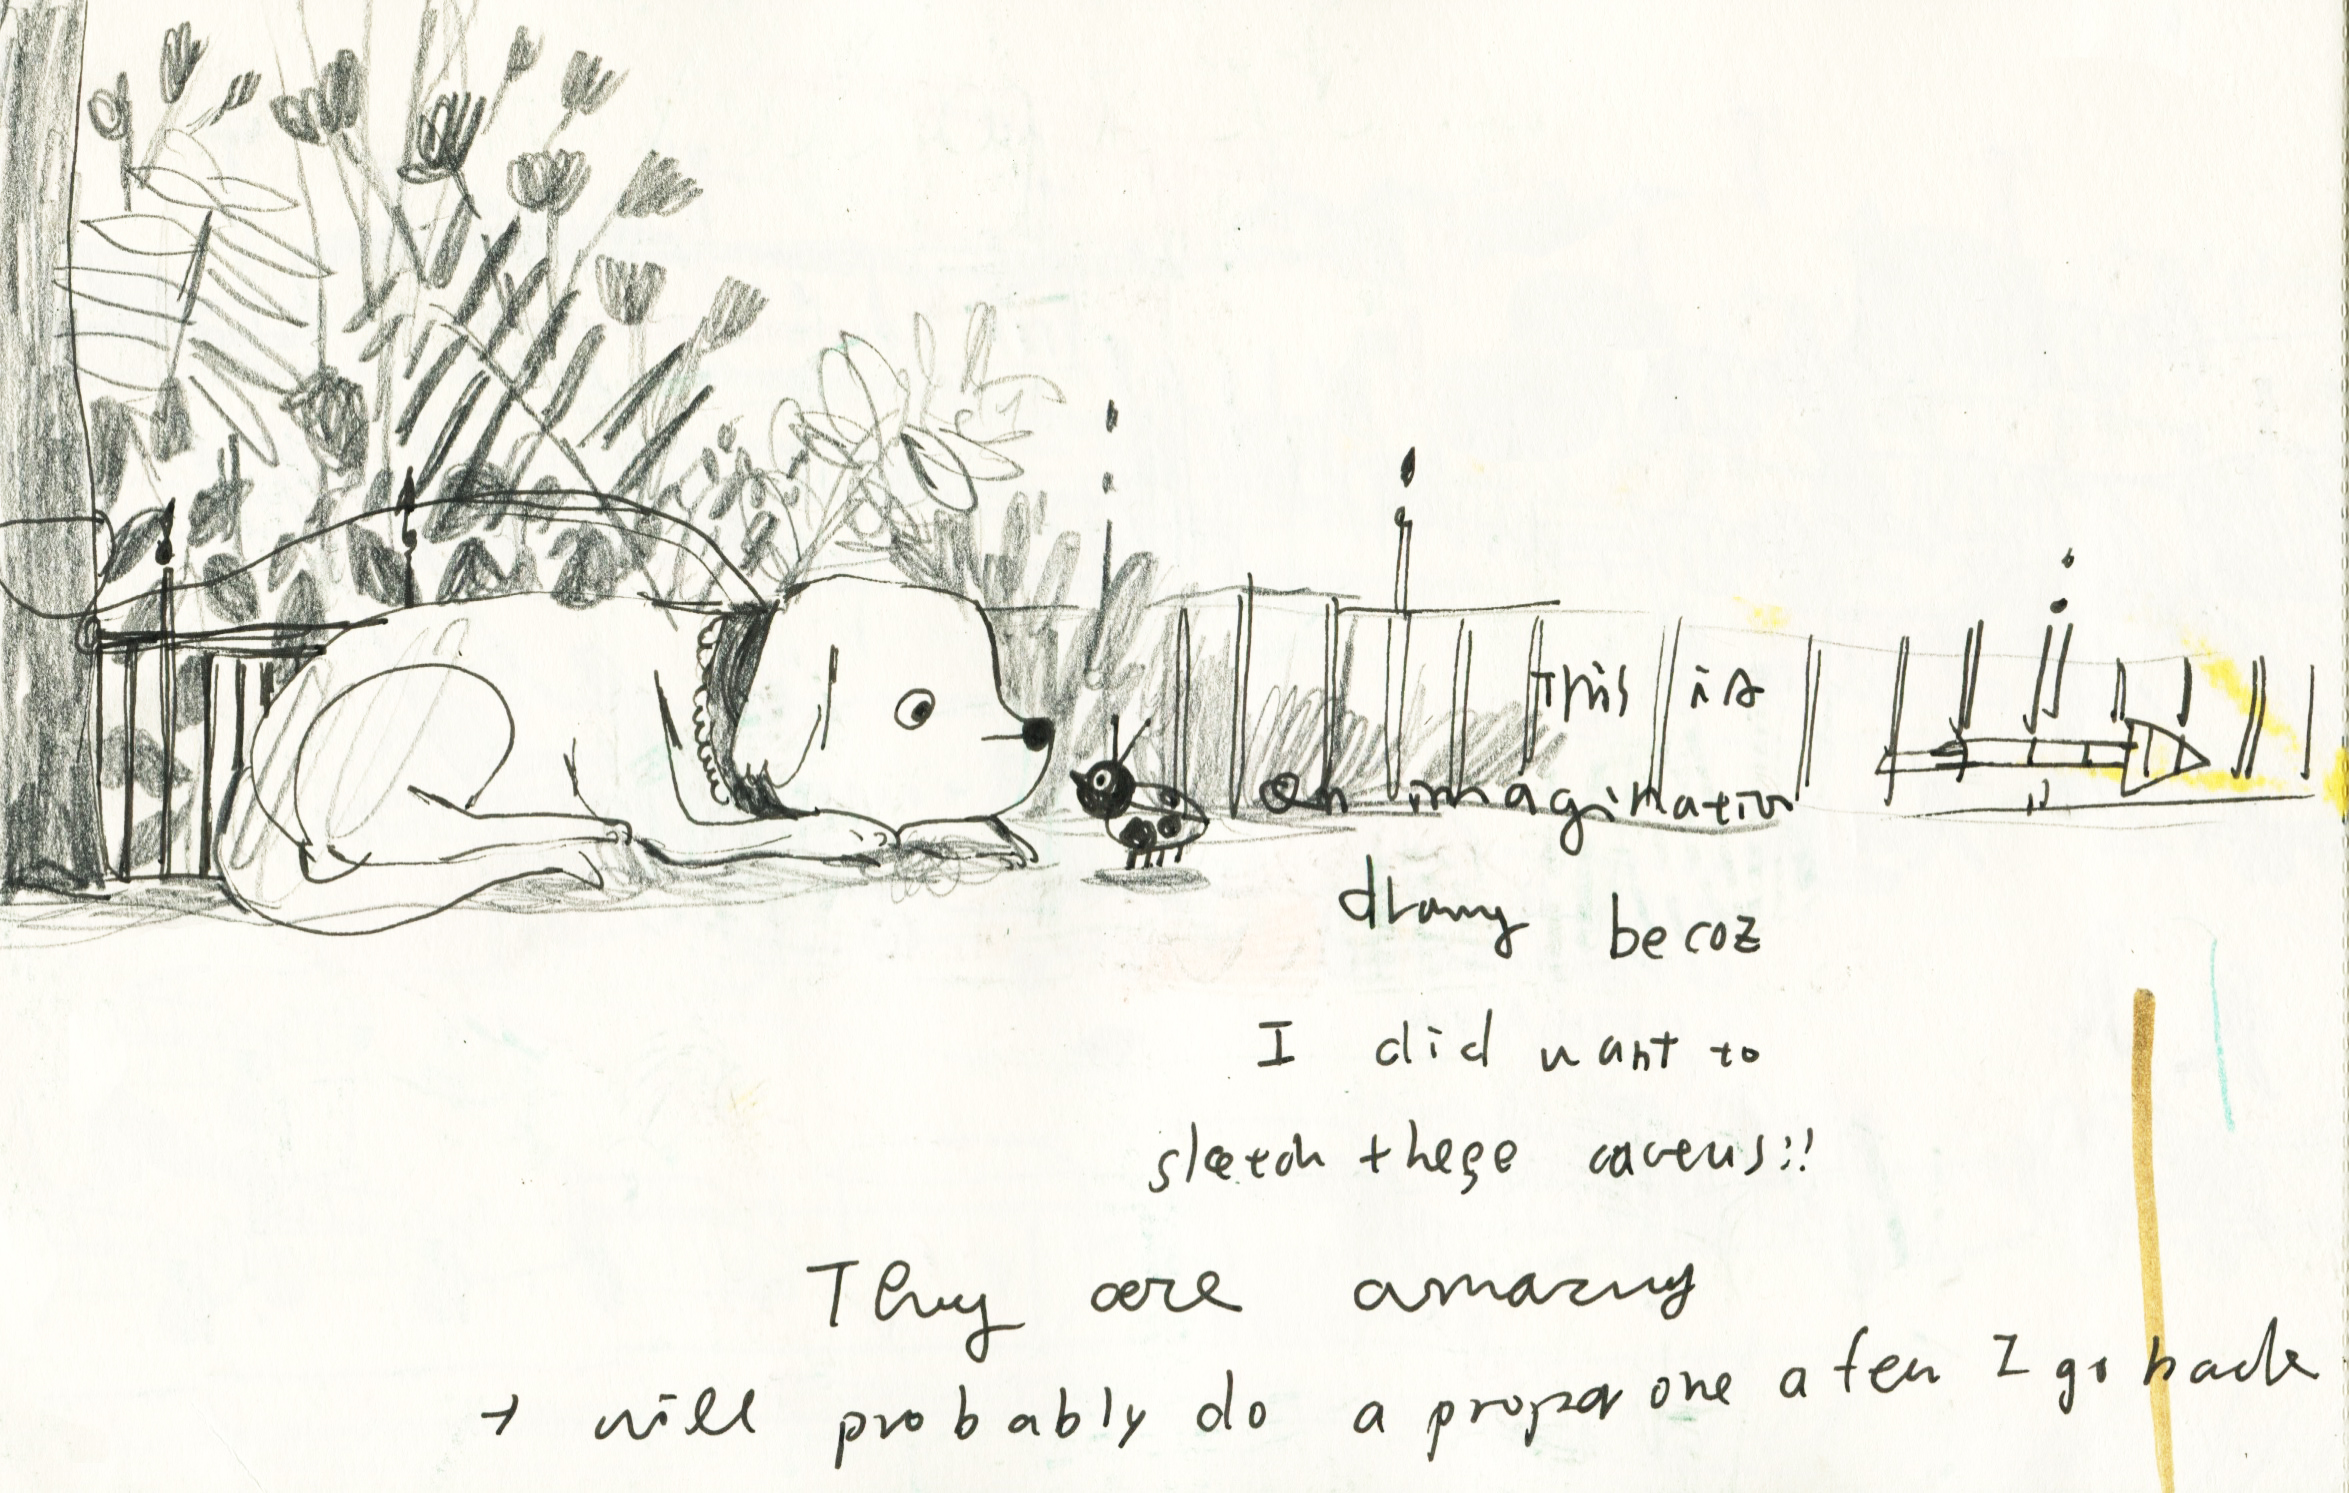 this is
an imagination
drawing becoz
I did want to
sketch these
They are amazing
I will probably do a proper one after I go back